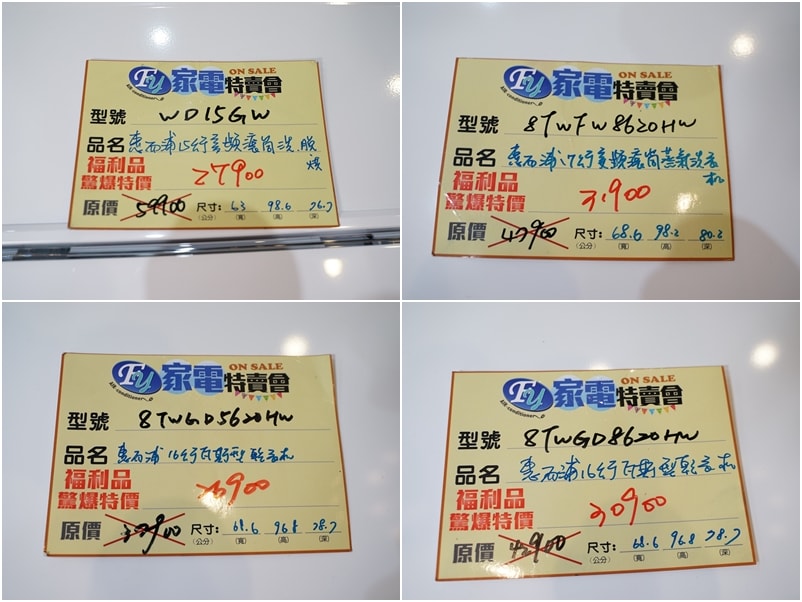 Fu 家電 ON SALE 特賣會
Air conditioner
型號 WD15GW
品名 惠而浦15公斤變頻滾筒洗脫烘
福利品
驚爆特價 27900
原價 59900 尺寸: 63 98.6 76.7
(公分) (寬) (高) (深)
Fu 家電 ON SALE 特賣會
Air conditioner
型號 8TWFW8620HW
品名 惠而浦17公斤變頻滾筒蒸氣洗衣機
福利品
驚爆特價 31900
原價 47900 尺寸: 68.6 98.2 80.2
(公分) (寬) (高) (深)
Fu 家電 ON SALE 特賣會
Air conditioner
型號 8TWGD5620HW
品名 惠而浦 16公斤瓦斯型乾衣機
福利品
驚爆特價 26900
原價 尺寸: 68.6 96.8 78.7
(公分) (寬) (高) (深)
Fu 家電 ON SALE 特賣會
Air conditioner
型號 8TWGD8620HW
品名 惠而浦16公斤瓦斯型乾衣機
福利品
驚爆特價 30900
原價 42900 尺寸: 68.6 96.8 78.7
(公分) (寬) (高) (深)